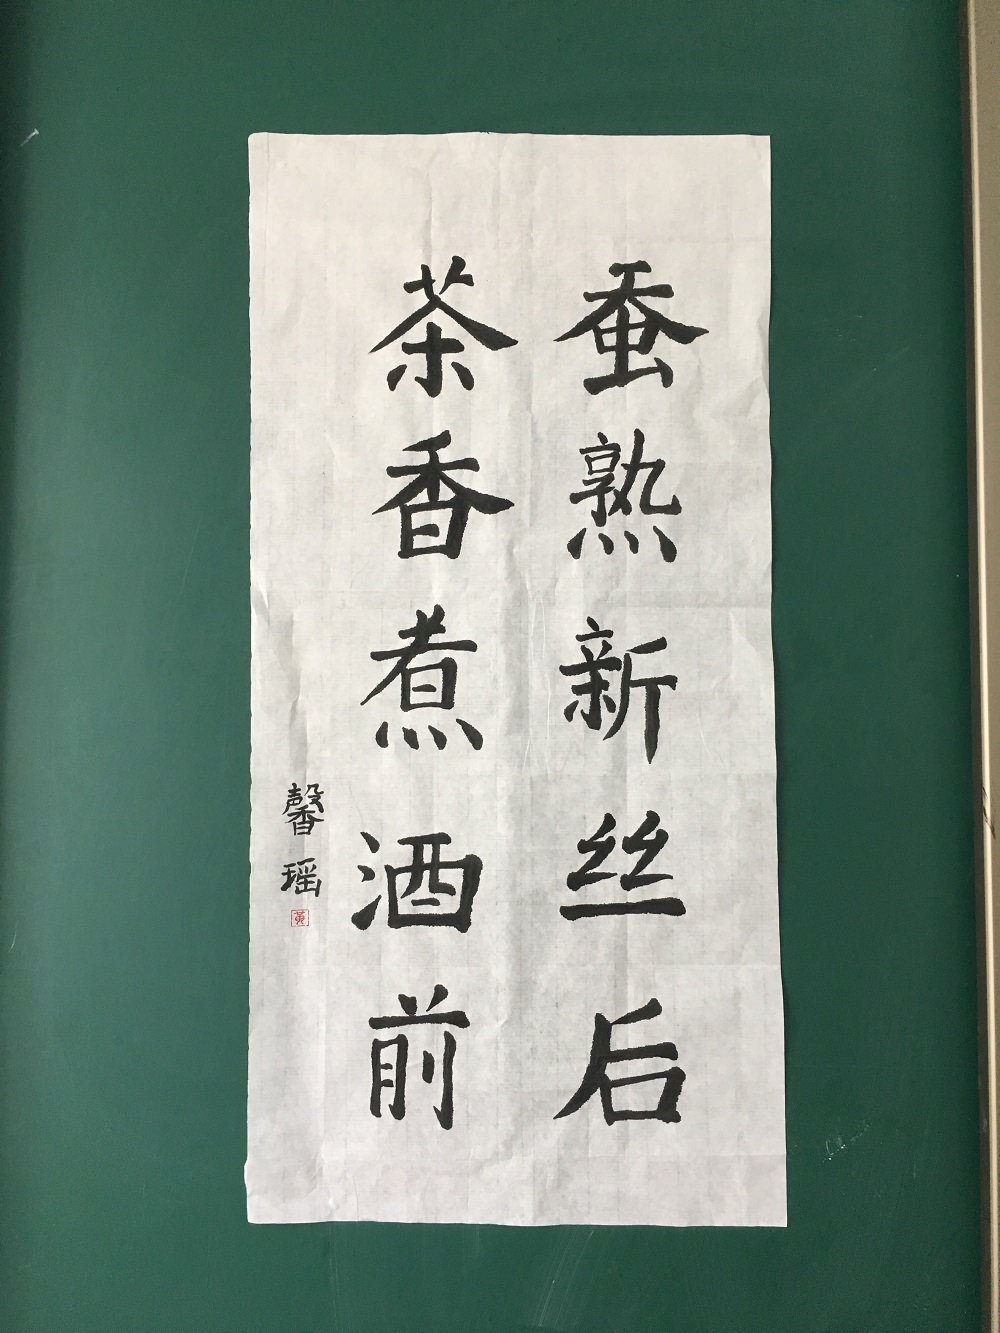 蚕熟新丝后
茶香煮酒前
馨瑶
黄